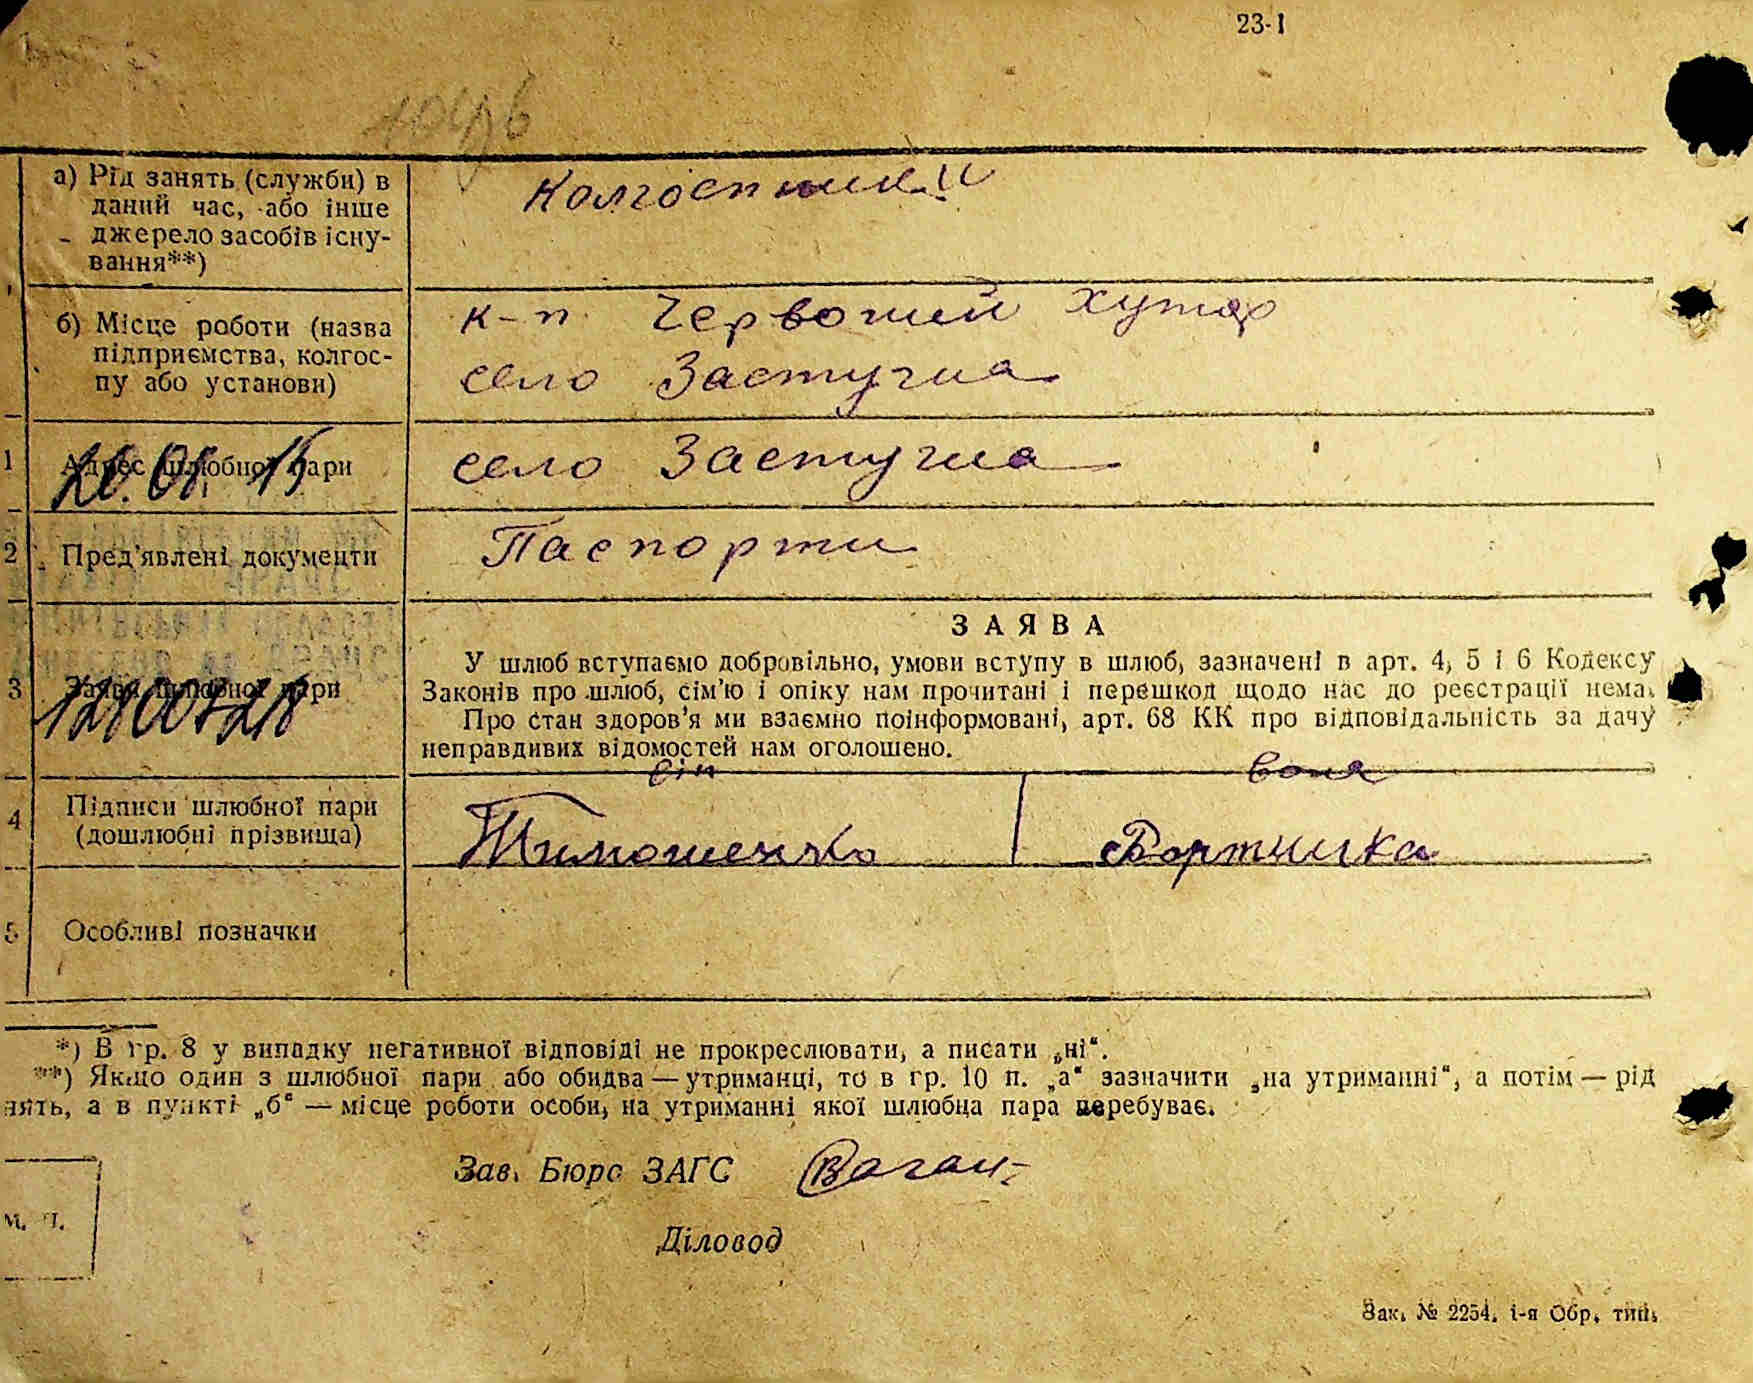 23-1
а) Рід занять (служби) в
даний час, або інше
джерело засобів існу-
вання**)
Колгоспники
б) Місце роботи (назва
підприємства, колгос-
пу або установи)
к-п Червоний Хутор
село Застугна
1 Адрес шлюбної пари
20.08.15
село Застугна
2 Пред'явлені документи
Паспорти
3 Заява шлюбної пари
ЗАЯВА
У шлюб вступаємо добровільно, умови вступу в шлюб, зазначені в арт. 4, 5 і 6 Кодексу
Законів про шлюб, сім'ю і опіку нам прочитані і перешкод щодо нас до реєстрації нема.
Про стан здоров'я ми взаємно поінформовані, арт. 68 КК про відповідальність за дачу
неправдивих відомостей нам оголошено.
він вона
4 Підписи шлюбної пари
(дошлюбні прізвища)
Тимошенко Бортника
5 Особливі позначки
*) В гр. 8 у випадку негативної відповіді не прокреслювати, а писати „ні“.
**) Якщо один з шлюбної пари або обидва — утриманці, то в гр. 10 п. „а“ зазначити „на утриманні“, а потім — рід
нять, а в пункті „б“ — місце роботи особи, на утриманні якої шлюбна пара перебуває.
Зав. Бюро ЗАГС
М. П.
Діловод
Зак. № 2254. і-я Обр. тип.